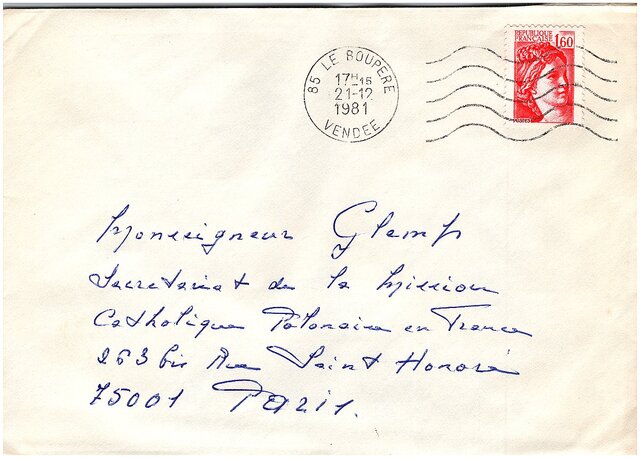 REPUBLIQUE
FRANÇAISE 1,60
POSTES
85 LE BOUPERE
17H15
21-12
1981
VENDEE
Monseigneur Glemp
Secretariat de la Mission
Catholique Polonaise en France
263 bis Rue Saint Honoré
75001 Paris.